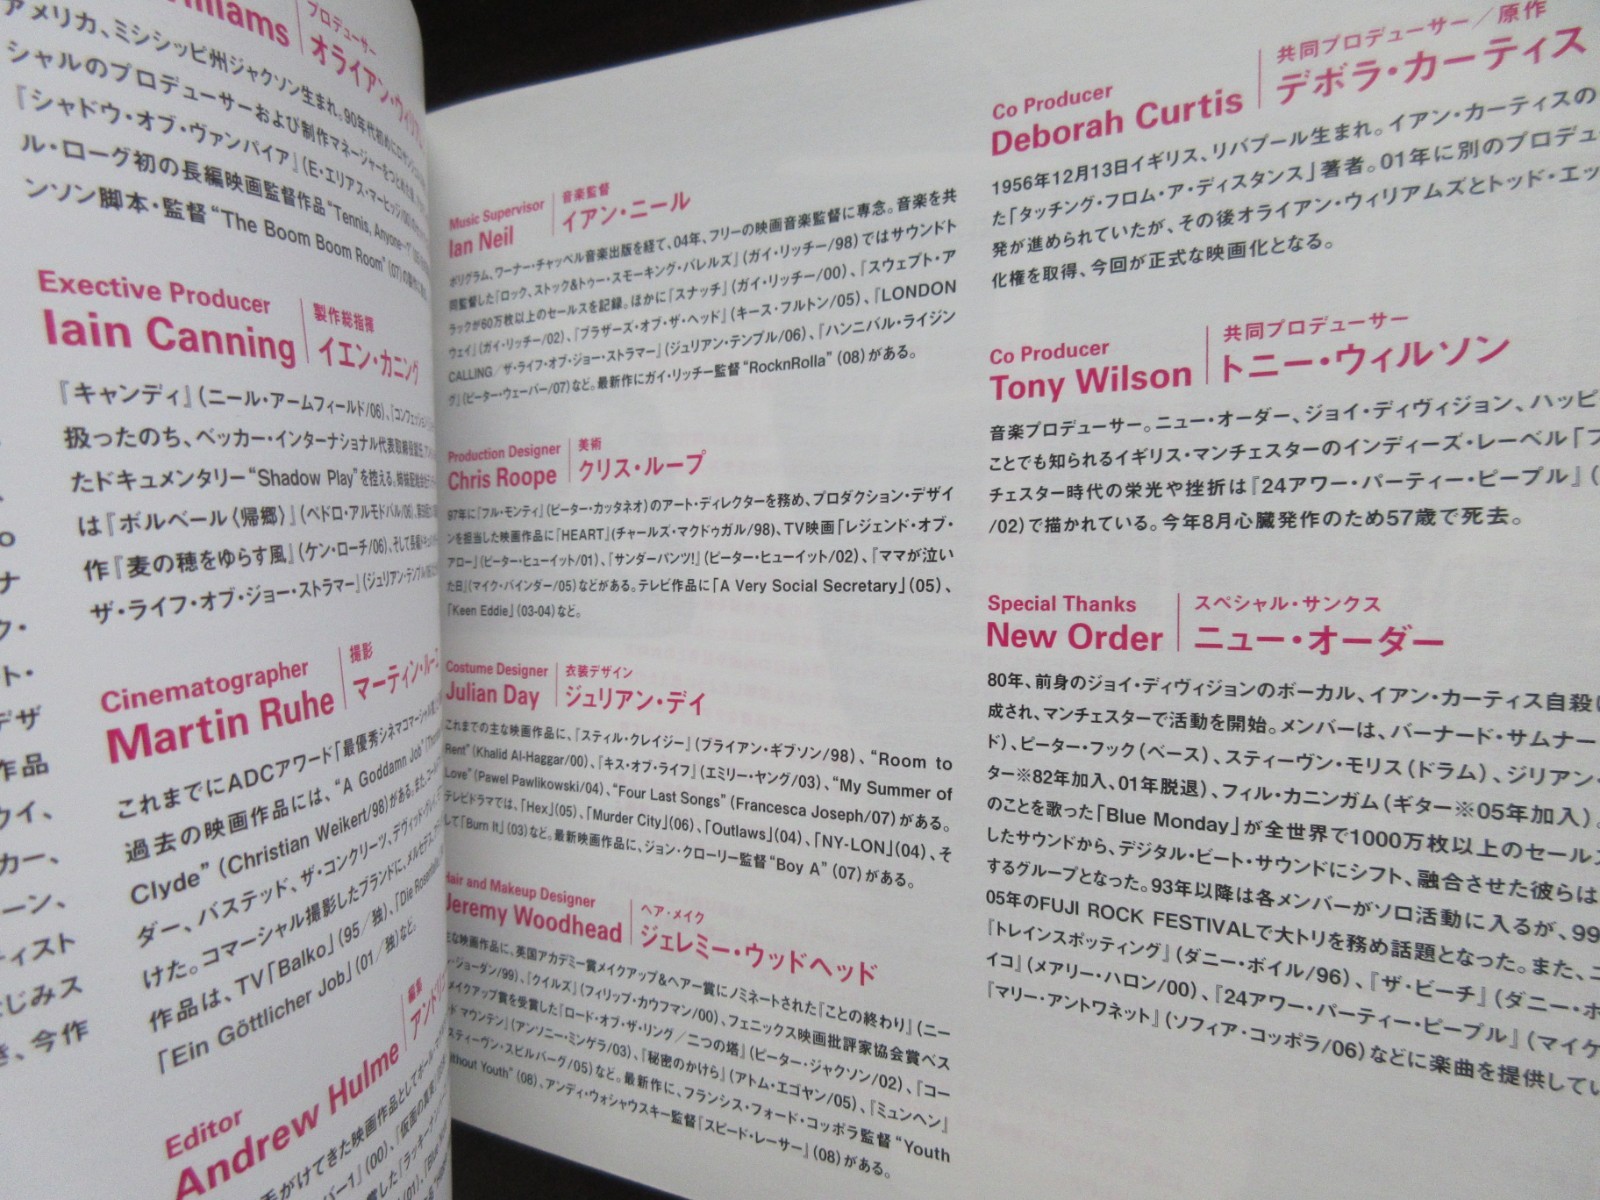 lliams
プロデューサー
オライアン・ウィリ
アメリカ、ミシシッピ州ジャクソン生まれ。90年代初めにロ
シャルのプロデューサーおよび制作マネージャーをつとめ
『シャドウ・オブ・ヴァンパイア』(E・エリアス・マーヒッジ
ル・ローグ初の長編映画監督作品“Tennis, Anyone
ンソン脚本・監督“The Boom Boom Room”(07)
Exective Producer
製作総指揮
Iain Canning
イエン・カニング
『キャンディ』(ニール・アームフィールド/06)、『コンフェッ
扱ったのち、ベッカー・インターナショナル代表取締役
たドキュメンタリー“Shadow Play”を控える。
は『ボルベール〈帰郷〉』(ペドロ・アルモドバル/06)、
作『麦の穂をゆらす風』(ケン・ローチ/06)、そして
ザ・ライフ・オブ・ジョー・ストラマー』(ジュリアン・テンプル
Cinematographer
撮影
Martin Ruhe
マーティン・ルー
これまでにADCアワード「最優秀シネマコマーシャル
過去の映画作品には、“A Goddamn Job”
Clyde”(Christian Weikert/98)がある。また、
ダー、バステッド、ザ・コンクリーツ、デヴィッド・
けた。コマーシャル撮影したブランドに、メルセデス、
作品は、TV「Balko」(95/独)、「Die
「Ein Göttlicher Job」(01/独)など。
Editor
編集
Andrew Hulme
アンド
手がけてきた映画作品としてポール・マ
デザ
作品
ウイ、
カー、
ーン、
ティスト
なじみス
き、今作
Music Supervisor
音楽監督
Ian Neil
イアン・ニール
ポリグラム、ワーナー・チャッペル音楽出版を経て、04年、フリーの映画音楽監督に専念。音楽を共
同監督した『ロック、ストック&トゥー・スモーキング・バレルズ』(ガイ・リッチー/98)ではサウンドト
ラックが60万枚以上のセールスを記録。ほかに『スナッチ』(ガイ・リッチー/00)、『スウェプト・ア
ウェイ』(ガイ・リッチー/02)、『ブラザーズ・オブ・ザ・ヘッド』(キース・フルトン/05)、『LONDON
CALLING/ザ・ライフ・オブ・ジョー・ストラマー』(ジュリアン・テンプル/06)、『ハンニバル・ライジン
グ』(ピーター・ウェーバー/07)など。最新作にガイ・リッチー監督“RocknRolla”(08)がある。
Production Designer
美術
Chris Roope
クリス・ループ
97年に『フル・モンティ』(ピーター・カッタネオ)のアート・ディレクターを務め、プロダクション・デザイ
ンを担当した映画作品に『HEART』(チャールズ・マクドゥガル/98)、TV映画「レジェンド・オブ・
アロー」(ピーター・ヒューイット/01)、『サンダーパンツ!』(ピーター・ヒューイット/02)、『ママが泣い
た日』(マイク・バインダー/05)などがある。テレビ作品に「A Very Social Secretary」(05)、
「Keen Eddie」(03-04)など。
Costume Designer
衣装デザイン
Julian Day
ジュリアン・デイ
これまでの主な映画作品に、『スティル・クレイジー』(ブライアン・ギブソン/98)、“Room to
Rent”(Khalid Al-Haggar/00)、『キス・オブ・ライフ』(エミリー・ヤング/03)、“My Summer of
Love”(Pawel Pawlikowski/04)、“Four Last Songs”(Francesca Joseph/07)がある。
テレビドラマでは、「Hex」(05)、「Murder City」(06)、「Outlaws」(04)、「NY-LON」(04)、そ
して「Burn It」(03)など。最新映画作品に、ジョン・クローリー監督“Boy A”(07)がある。
Hair and Makeup Designer
ヘア・メイク
Jeremy Woodhead
ジェレミー・ウッドヘッド
主な映画作品に、英国アカデミー賞メイクアップ&ヘアー賞にノミネートされた『ことの終わり』(ニー
・ジョーダン/99)、『クイルズ』(フィリップ・カウフマン/00)、フェニックス映画批評家協会賞ベス
メイクアップ賞を受賞した『ロード・オブ・ザ・リング/二つの塔』(ピーター・ジャクソン/02)、『コー
ド マウンテン』(アンソニー・ミンゲラ/03)、『秘密のかけら』(アトム・エゴヤン/05)、『ミュンヘン』
スティーヴン・スピルバーグ/05)など。最新作に、フランシス・フォード・コッポラ監督“Youth
Without Youth”(08)、アンディ・ウォシャウスキー監督『スピード・レーサー』(08)がある。
Co Producer
共同プロデューサー/原作
Deborah Curtis
デボラ・カーティス
1956年12月13日イギリス、リバプール生まれ。イアン・カーティスの
た「タッチング・フロム・ア・ディスタンス」著者。01年に別のプロデュ
発が進められていたが、その後オライアン・ウィリアムズとトッド・エッ
化権を取得、今回が正式な映画化となる。
Co Producer
共同プロデューサー
Tony Wilson
トニー・ウィルソン
音楽プロデューサー。ニュー・オーダー、ジョイ・ディヴィジョン、ハッピ
ことでも知られるイギリス・マンチェスターのインディーズ・レーベル「フ
チェスター時代の栄光や挫折は『24アワー・パーティー・ピープル』(
/02)で描かれている。今年8月心臓発作のため57歳で死去。
Special Thanks
スペシャル・サンクス
New Order
ニュー・オーダー
80年、前身のジョイ・ディヴィジョンのボーカル、イアン・カーティス自殺に
成され、マンチェスターで活動を開始。メンバーは、バーナード・サムナー
ド)、ピーター・フック(ベース)、スティーヴン・モリス(ドラム)、ジリアン・
ター※82年加入、01年脱退)、フィル・カニンガム(ギター※05年加入)。
のことを歌った「Blue Monday」が全世界で1000万枚以上のセールス
したサウンドから、デジタル・ビート・サウンドにシフト、融合させた彼らは
するグループとなった。93年以降は各メンバーがソロ活動に入るが、99
05年のFUJI ROCK FESTIVALで大トリを務め話題となった。また、ニ
『トレインスポッティング』(ダニー・ボイル/96)、『ザ・ビーチ』(ダニー・ボ
イコ』(メアリー・ハロン/00)、『24アワー・パーティー・ピープル』(マイケ
『マリー・アントワネット』(ソフィア・コッポラ/06)などに楽曲を提供してい